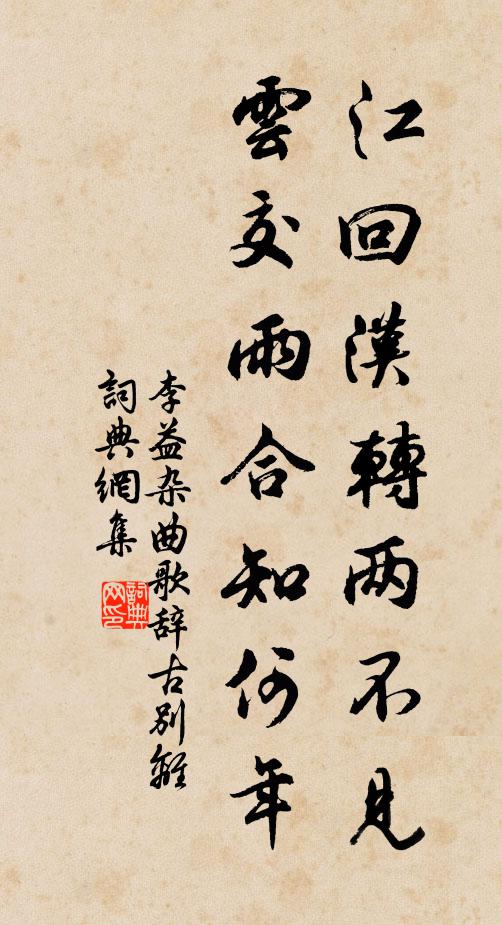 江回漢轉两不見
雲交雨合知何年
李益杂曲歌辞古别離
詞典網集
詞典
网印